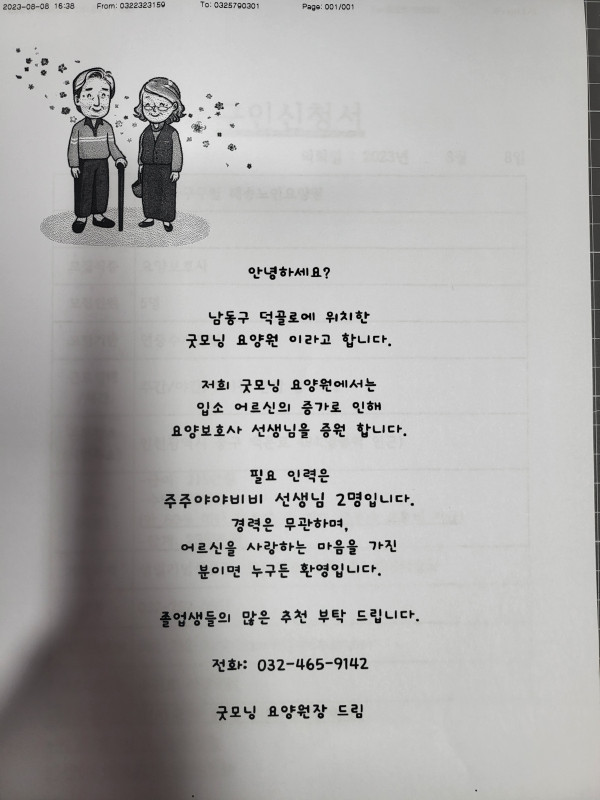 2023-08-08 16:38 From: 0322323159 To: 0325790301 Page: 001/001
안녕하세요?
남동구 덕골로에 위치한
굿모닝 요양원 이라고 합니다.
저희 굿모닝 요양원에서는
입소 어르신의 증가로 인해
요양보호사 선생님을 증원 합니다.
필요 인력은
주주야야비비 선생님 2명입니다.
경력은 무관하며,
어르신을 사랑하는 마음을 가진
분이면 누구든 환영입니다.
졸업생들의 많은 추천 부탁 드립니다.
전화: 032-465-9142
굿모닝 요양원장 드림